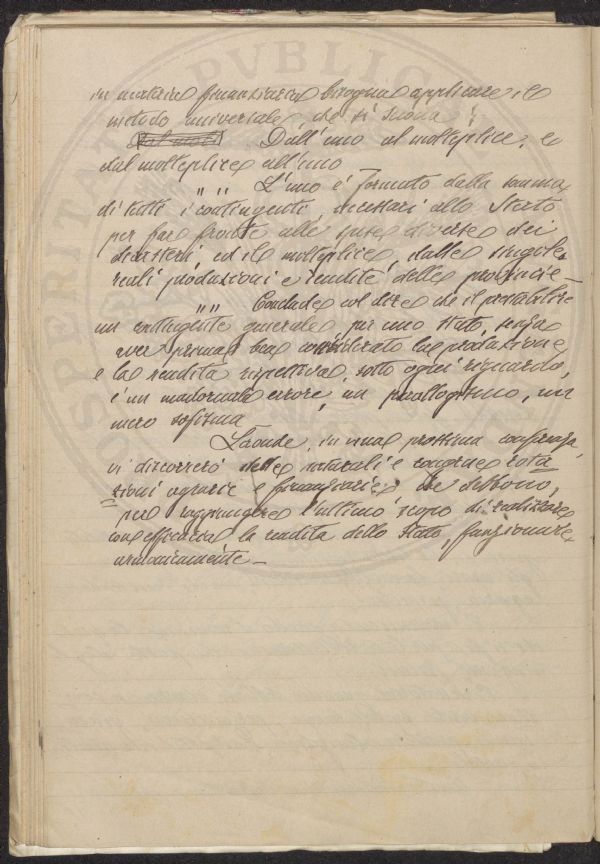 in materia finanziaria bisogna applicare il
metodo universale, che si suona:
Dall'uno al molteplice; e
dal molteplice all'uno
" " L'uno è formato dalla somma
di tutti i contingenti, necessari allo Stato
per far fronte alle spese diverse dei
dicasteri, ed il molteplice, dalle singole
reali produzioni e rendite delle provincie —
" " Conclude col dire che il prestabilire
un contingente generale, per uno stato, senza
aver prima ben considerato la produzione
e la rendita rispettiva, sotto ogni riguardo,
è un madornale errore, un paralogismo, un
mero sofisma.
Laonde, in una prossima conferenza,
vi discorrerò delle naturali e congrue rota
zioni agrarie e finanziarie, che debbono,
per raggiungere l'ultimo scopo di realizzare
con efficacia la rendita dello Stato, funzionare
armonicamente —